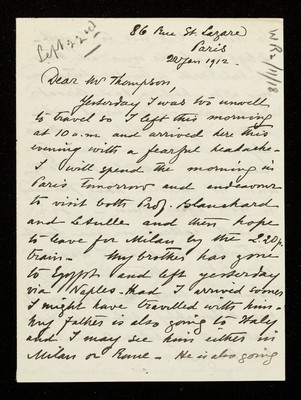 86 Rue St. Lazare
Paris
2nd Jan 1912.
Dear Mr Thompson,
Yesterday I was too unwell
to travel so I left this morning
at 10 a.m. and arrived here this
evening with a fearful headache -
I will spend the morning in
Paris tomorrow and endeavour
to visit both Prof. Blanchard
and Letulle and then hope
to leave for Milan by the 2.20 p.
train - My brother has gone
to Egypt and left yesterday
via Naples - Had I arrived sooner
I might have travelled with him -
My father is also going to Italy
and I may see him either in
Milan or Rome - He is also going